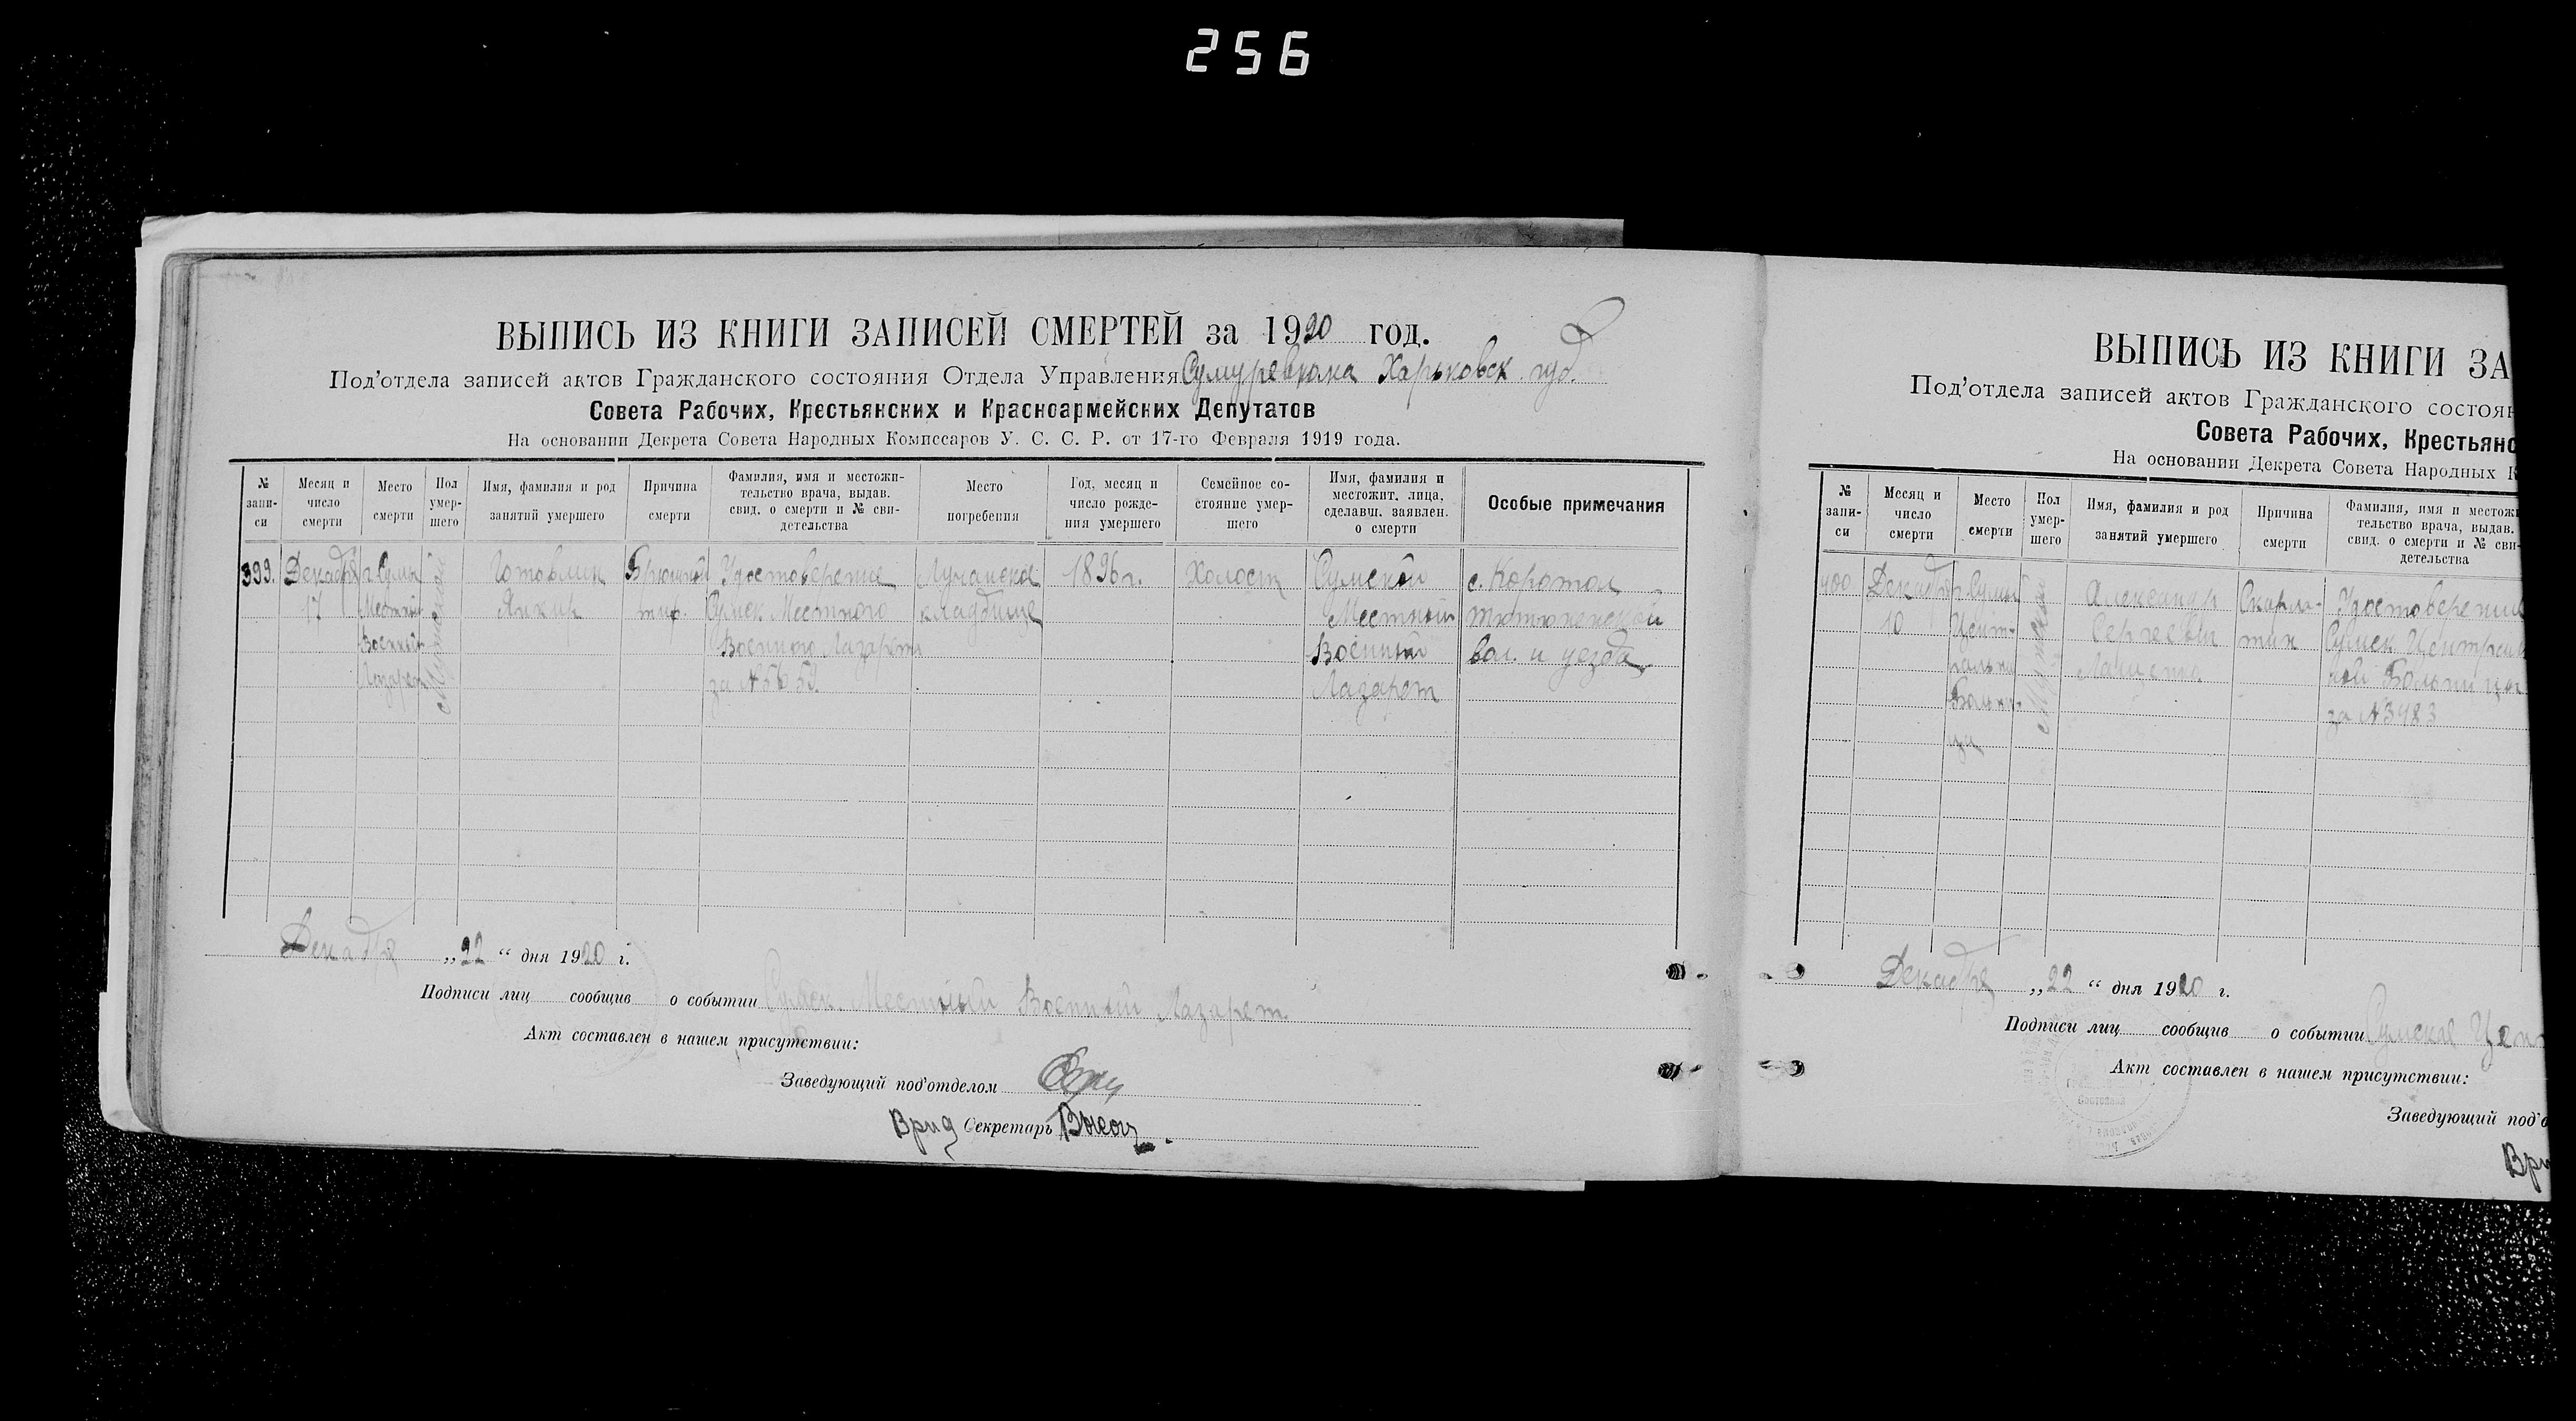 256
ВЫПИСЬ ИЗ КНИГИ ЗАПИСЕЙ СМЕРТЕЙ за 1920 год.
Под'отдела записей актов Гражданского состояния Отдела Управления Сумуревкома Харьковск. губ.
Совета Рабочих, Крестьянских и Красноармейских Депутатов
На основании Декрета Совета Народных Комиссаров У. С. С. Р. от 17-го Февраля 1919 года.
№ запи-
си
Месяц и
число
смерти
Место
смерти
Пол
умер-
шего
Имя, фамилия и род
занятий умершего
Причина
смерти
Фамилия, имя и местожи-
тельство врача, выдав.
свид. о смерти и № сви-
детельства
Место
погребения
Год, месяц и
число рожде-
ния умершего
Семейное со-
стояние умер-
шего
Имя, фамилия и
местожит. лица,
сделавш. заявлен.
о смерти
Особые примечания
399.
Декабря
17
г. Сумы
Местный
Военный
Лазарет
Мужской
Янкив
Брюшной
тиф.
Удостоверение
Сумск. Местного
Военного Лазарета
за №
Лучанское
кладбище
1896 г.
Холост
Сумской
Местный
Военный
Лазарет
с. Коротол
вол. и уезда
Декабря „22“ дня 1920 г.
Подписи лиц сообщив о событии Сумск. Местный Военный Лазарет.
Акт составлен в нашем присутствии:
Заведующий под'отделом
Врид Секретарь
ВЫПИСЬ ИЗ КНИГИ ЗА
Под'отдела записей актов Гражданского состоян
Совета Рабочих, Крестьянс
На основании Декрета Совета Народных К
№
запи-
си
Месяц и
число
смерти
Место
смерти
Пол
умер-
шего
Имя, фамилия и род
занятий умершего
Причина
смерти
Фамилия, имя и местожи
тельство врача, выдав.
свид. о смерти и № сви-
детельства
400
Декабря
10
г. Сумы
Цент-
ральна
Больни-
ца
Мужской
Александр
Сергеевич
Скарла-
тин
Удостоверение
Сумск. Централь
ной Больницы
за № 3483
Декабря „22“ дня 1920 г.
Подписи лиц сообщив о событии Сумская Цент
Акт составлен в нашем присутствии:
Заведующий под'о
Ври